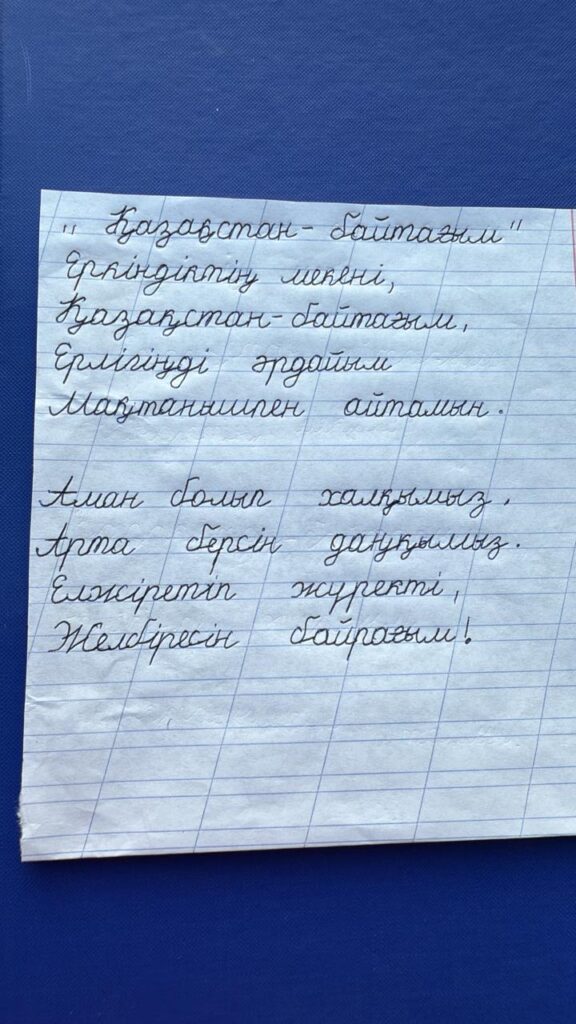 „ Қазақстан - байтағым"
Еркіндіктің мекені,
Қазақстан - байтағым,
Ерлігіңді әрдайым
Мақтанышпен айтамын.
Аман болып халқымыз.
Арта берсін даңқымыз.
Елжіретіп жүректі,
Желбіресін байрағым!